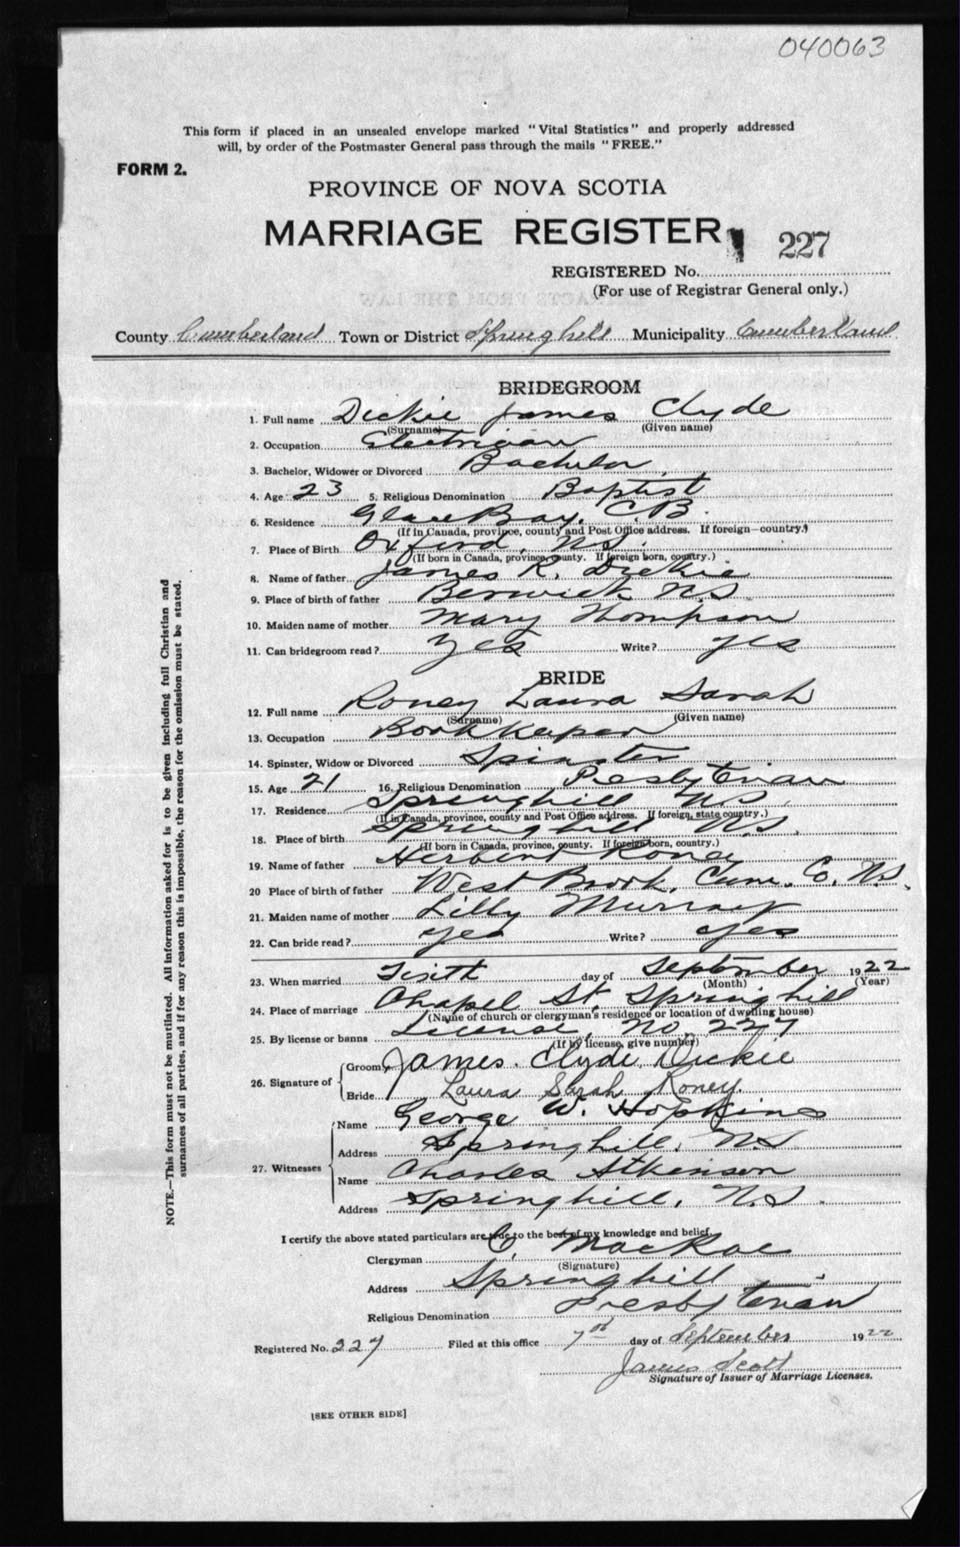 040063
This form if placed in an unsealed envelope marked "Vital Statistics" and properly addressed
will, by order of the Postmaster General pass through the mails "FREE."
FORM 2.
PROVINCE OF NOVA SCOTIA
MARRIAGE REGISTER
227
REGISTERED No.
(For use of Registrar General only.)
County Cumberland Town or District Springhill Municipality Cumberland
BRIDEGROOM
1. Full name Dickie James Clyde
(Surname) (Given name)
2. Occupation Electrician
3. Bachelor, Widower or Divorced Bachelor
4. Age 23 5. Religious Denomination Baptist
6. Residence Glace Bay, C.B.
(If in Canada, province, county and Post Office address. If foreign—country.)
7. Place of Birth Oxford, N.S.
(If born in Canada, province, county. If foreign born, country.)
8. Name of father James R. Dickie
9. Place of birth of father Berwick N.S.
10. Maiden name of mother Mary Thompson
11. Can bridegroom read? Yes Write? Yes
BRIDE
12. Full name Roney Laura Sarah
(Surname) (Given name)
13. Occupation Bookkeeper
14. Spinster, Widow or Divorced Spinster
15. Age 21 16. Religious Denomination Presbyterian
17. Residence Springhill N.S.
(If in Canada, province, county and Post Office address. If foreign, state country.)
18. Place of birth Springhill N.S.
(If born in Canada, province, county. If foreign born, country.)
19. Name of father Herbert Roney
20 Place of birth of father West Brook, Cum. Co. N.S.
21. Maiden name of mother Lilly Murray
22. Can bride read? Yes Write? Yes
23. When married day of September 1922
(Month) (Year)
24. Place of marriage Chapel St. Springhill
(Name of church or clergyman's residence or location of dwelling house)
25. By license or banns License, No. 227
(If by license, give number)
26. Signature of Groom James Clyde Dickie
Bride Laura Sarah Roney.
27. Witnesses Name George W. Hopkins
Address Springhill, N.S
Name Charles Atkinson
Address Springhill, N.S.
I certify the above stated particulars are true to the best of my knowledge and belief.
Clergyman C. MacKae
(Signature)
Address Springhill
Religious Denomination Presbyterian
Registered No. 227 Filed at this office 7th day of September 1922
James Scott
Signature of Issuer of Marriage Licenses.
[SEE OTHER SIDE]
NOTE.—This form must not be mutilated. All information asked for is to be given including full Christian and
surnames of all parties, and if for any reason this is impossible, the reason for the omission must be stated.